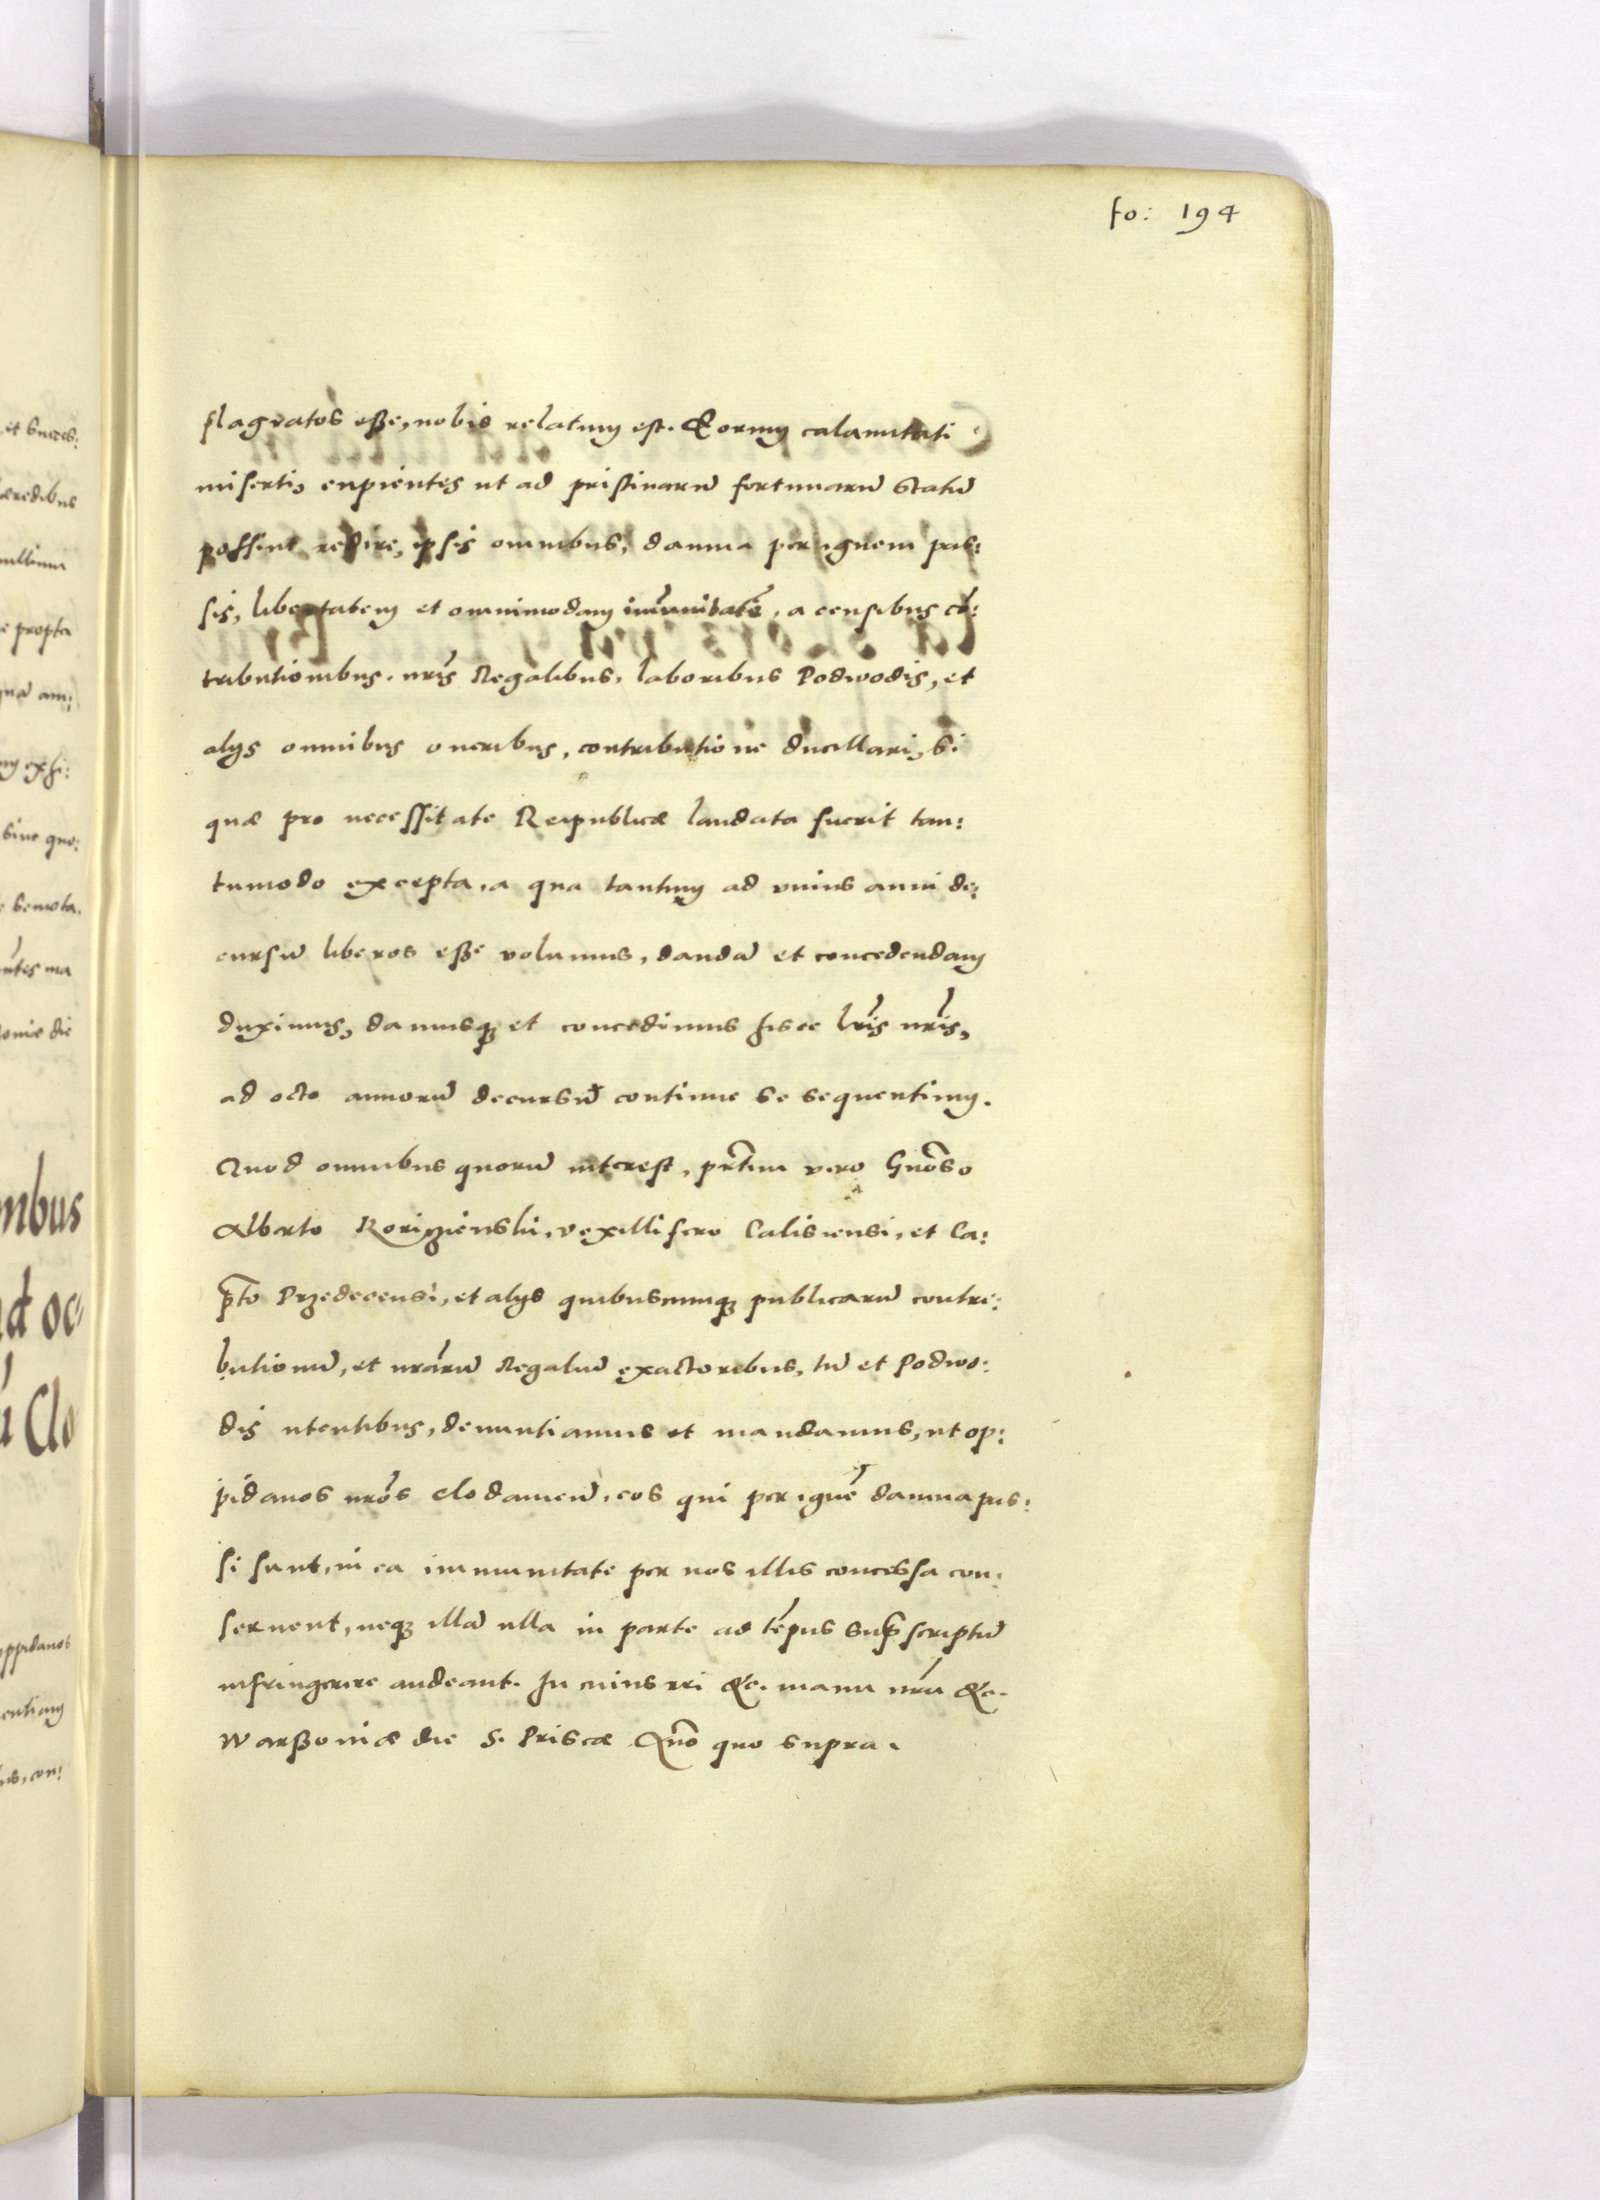 fo: 194
flagratos eße, nobis relatum est. Eorum calamitati
miserti, cupientes ut ad pristinarū fortunarū statū
possint redire, ipsis omnibus, damna per ignem pas:
sis, libertatem et omnimodam im̄unitatē, a censibus cō:
tributionibus, nr̄is Regalibus, laboribus Podwodis, et
alys omnibus oneribus, contributione ducillari, si
quæ pro necessitate Reipublicæ laudata fuerit tan:
tumodo excepta, a qua tantum ad unius anni de:
cursū liberos eße volumus, dandā et concedendam
duximus, damusq; et concedimus hisce lr̄is nr̄is,
ad octo annorū decursū continue se sequentium.
Quod omnibus quorū interest, pr̄tim vero Gn̄oso
Alberto Korizienski, vexillifero Calisiensi, et Ca:
pto Przedecensi, et alys quibuscumq; publicarū contri:
butionū, et nr̄arū Regaliū exactoribus, tū et Podwo:
dis utentibus, denuntiamus et mandamus, ut op:
pidanos nr̄os Clodamen̄, eos qui per ignē damna pas:
si sunt, in ea immunitate per nos illis concessa con:
servent, neq; illā ulla in parte ad tēpus supscriptū
infringere audeant. In cuius rei &c. manu nr̄a &c.
Warßoviæ die S. Priscæ An̄o quo supra.
et succes:
hæredibus
propter
am:
exhi:
sive quo:
semota.
ma
die
mbus
oc
Clo
oppidanos
con: